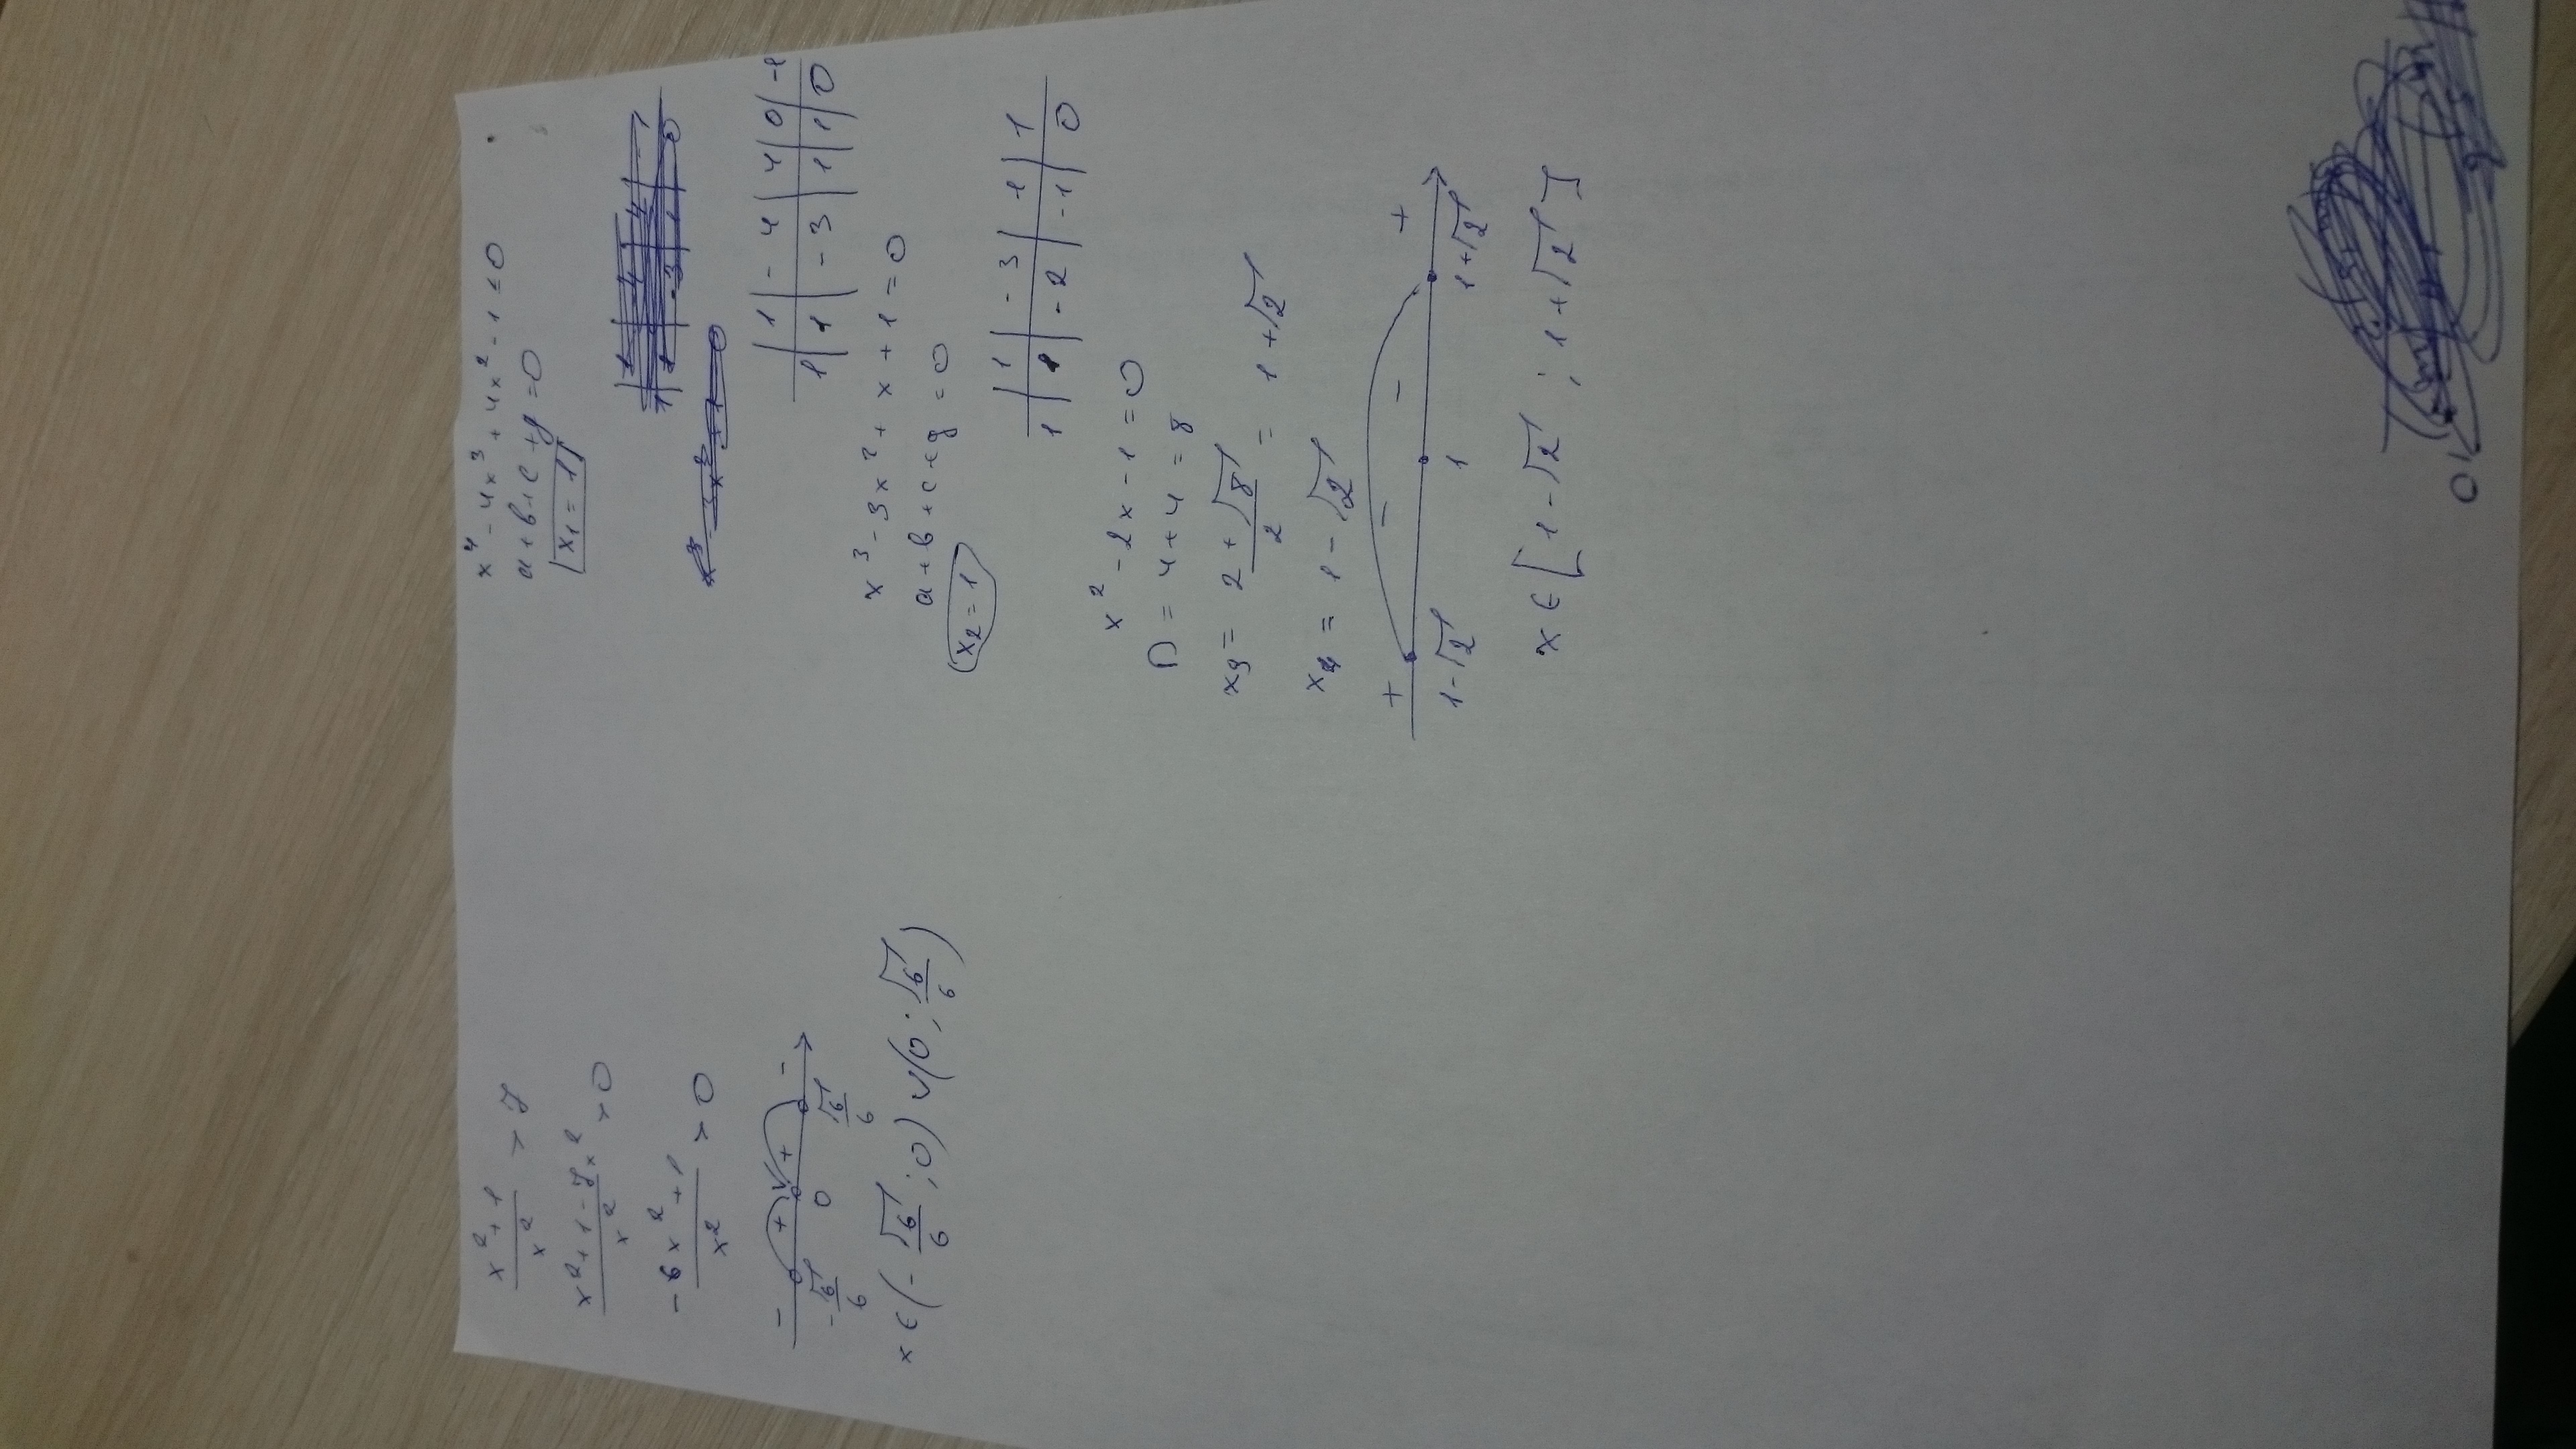 x² + 1 / x² > 7
x² + 1 - 7x² / x² > 0
-6x² + 1 / x² > 0
- + + -
-√6/6 0 √6/6
x ∈ (-√6/6 ; 0) ∪ (0 ; √6/6)
x⁴ - 4x³ + 4x² - 1 ≤ 0
a + b + c + g = 0
x₁ = 1
| 1 | -4 | 4 | 0 | -1
1 | 1 | -3 | 1 | 1 | 0
x³ - 3x² + x + 1 = 0
a + b + c + g = 0
x₂ = 1
| 1 | -3 | 1 | 1
1 | 1 | -2 | -1 | 0
x² - 2x - 1 = 0
D = 4 + 4 = 8
x₃ = 2 + √8 / 2 = 1 + √2
x₄ = 1 - √2
+ - - +
1-√2 1 1+√2
x ∈ [1 - √2 ; 1 + √2]